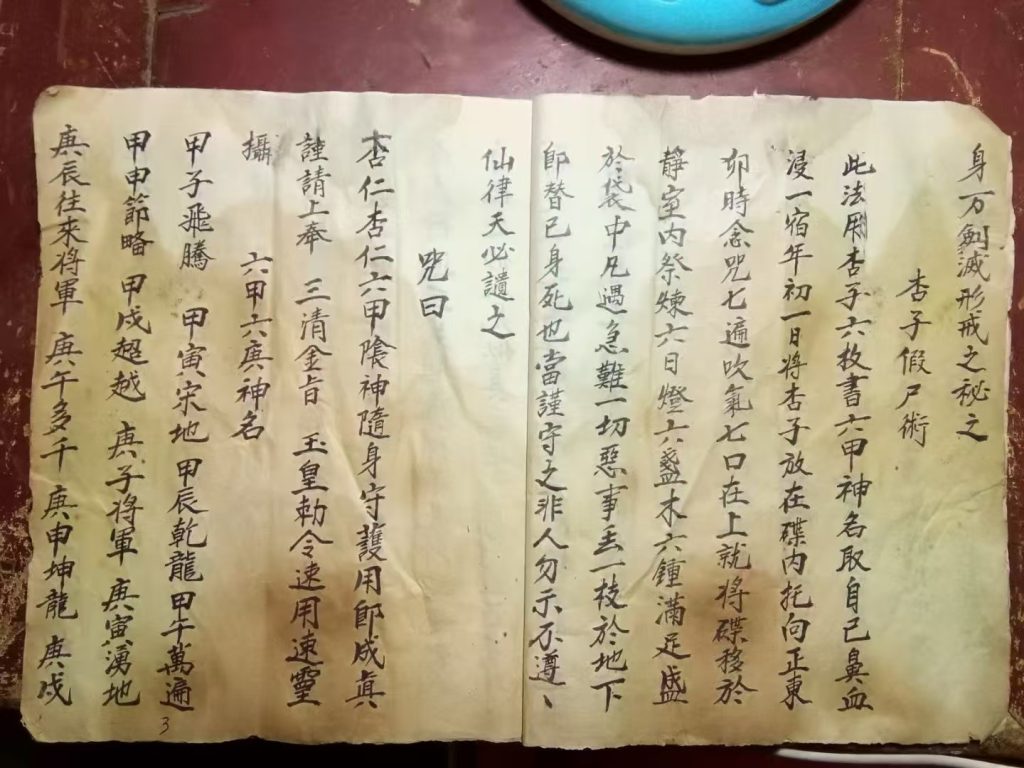 身万劍滅形戒之秘之
杏子假尸術
此法用杏子六枚書六甲神名取自己鼻血
浸一宿年初一日將杏子放在碟内托向正東
卯時念咒七遍吹氣七口在上就將碟移於
靜室内祭煉六日燈六盞木六鍾滿足盛
於袋中凡遇急難一切惡事丢一枝於地下
即替己身死也當謹守之非人勿示不遵、
仙律天必譴之
咒曰
杏仁杏仁六甲陰神隨身守護用即成真
謹請上奉 三清金旨 玉皇勅令速用速靈
攝 六甲六庚神名
甲子飛騰 甲寅宋地 甲辰乾龍 甲午萬遍
甲申節略 甲戌超越 庚子將軍 庚寅湧地
庚辰往來將軍 庚午多千 庚申坤龍 庚戌
3